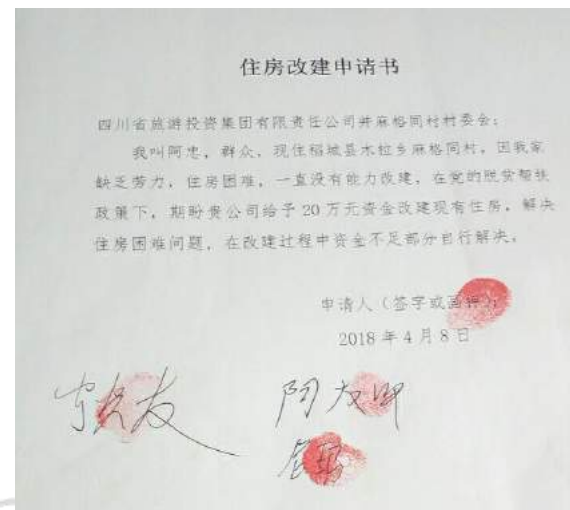 住房改建申请书
四川省旅游投资集团有限责任公司并麻格同村村委会:
我叫阿忠,群众,现住稻城县木拉乡麻格同村,因我家
缺乏劳力,住房困难,一直没有能力改建,在党的脱贫帮扶
政策下,期盼贵公司给予 20 万元资金改建现有住房,解决
住房困难问题,在改建过程中资金不足部分自行解决。
申请人(签字或画押):
2018 年 4 月 8 日